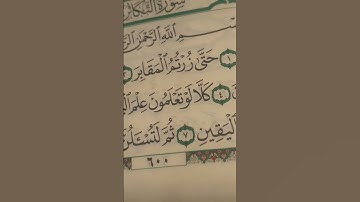 سُورَةُ التَّكَاثُرِ
اللَّهِ الرَّحْمَٰنِ
١ حَتَّىٰ زُرْتُمُ الْمَقَابِرَ ٢
٤ كَلَّا لَوْ تَعْلَمُونَ عِلْمَ
الْيَقِينِ ٧ ثُمَّ لَتُسْأَلُنَّ
٦٠٠